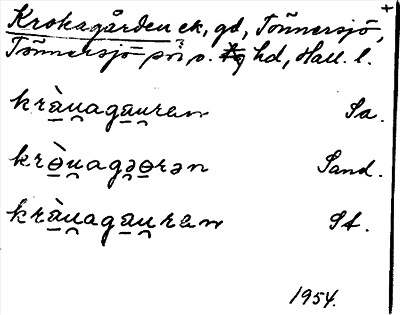 Krokagården ek, gd, Tönnersjö, +
Tönnersjö hd, Hall. l.
kràu̯agau̯ren Sa.
krɵ̀u̯agəɵrən Sand.
kràu̯agau̯ren St.
1954.